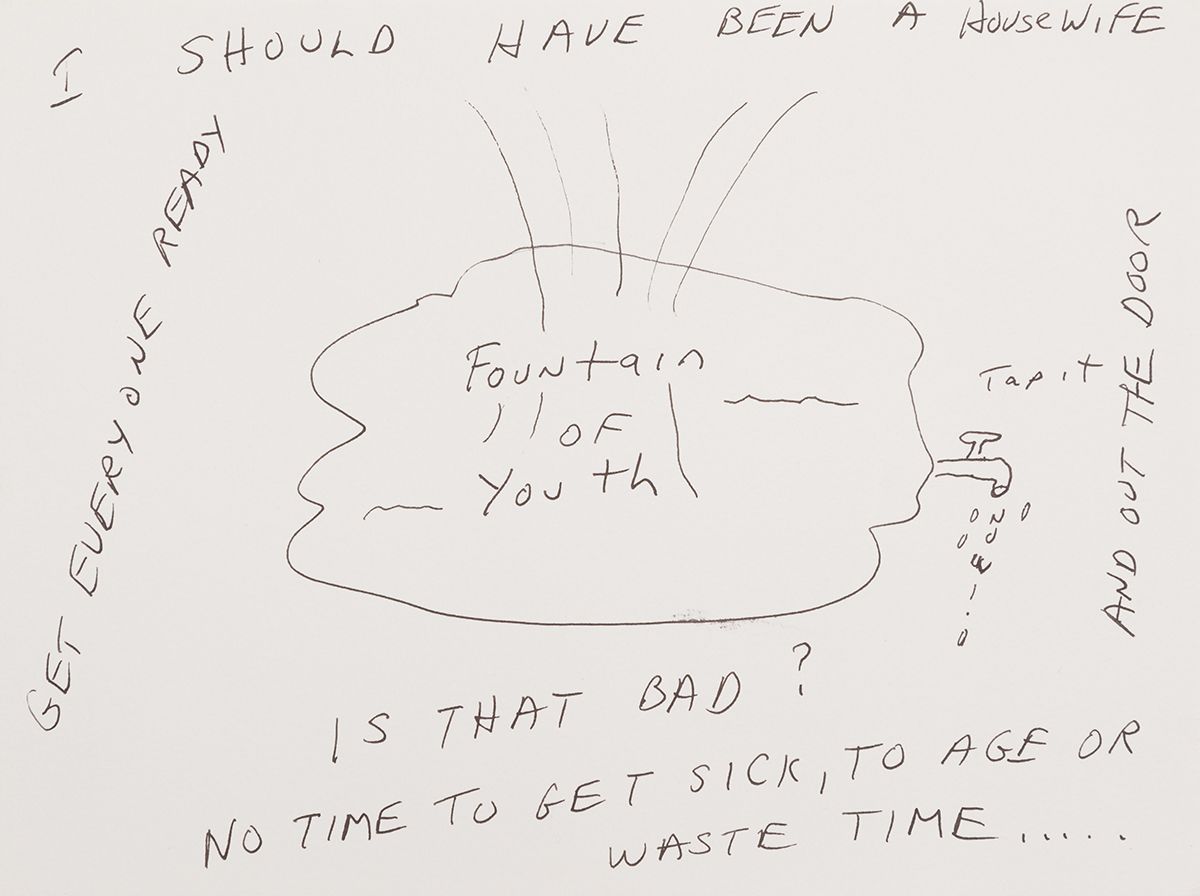 I SHOULD HAVE BEEN A HOUSEWIFE
GET EVERYONE READY
AND OUT THE DOOR
Fountain
OF
Youth
Tap it
IS THAT BAD?
NO TIME TO GET SICK, TO AGE OR
WASTE TIME.....